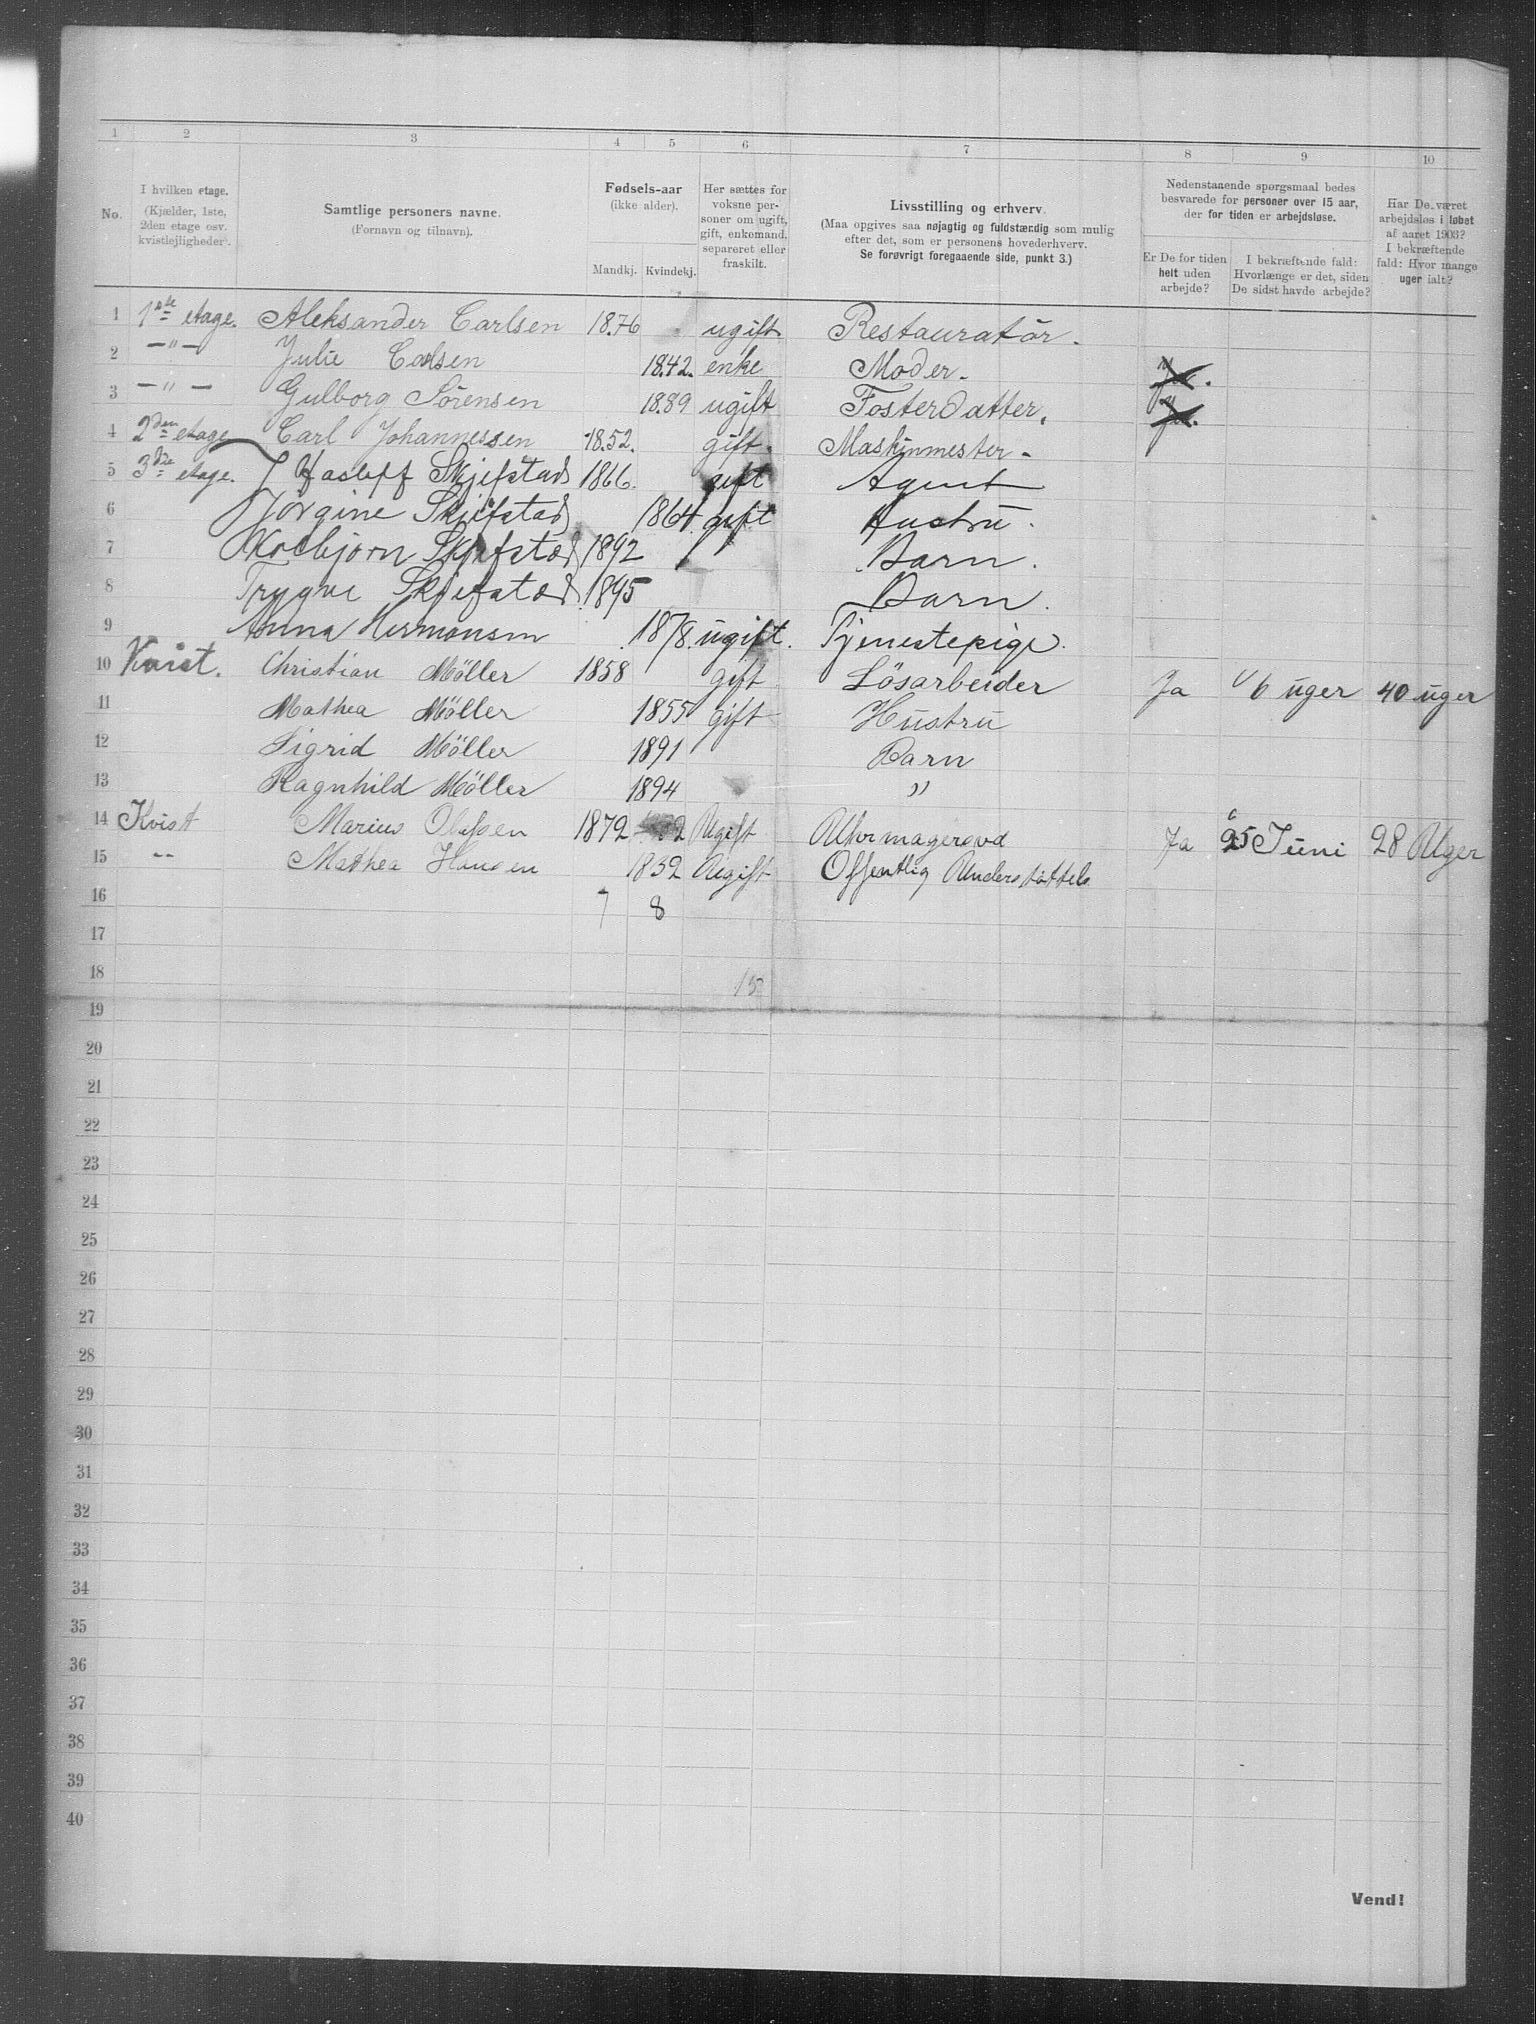 1 2 3 4 5 6 7 8 9 10
No.
I hvilken etage.
(Kjælder, 1ste,
2den etage osv.
kvistlejligheder).
Samtlige personers navne.
(Fornavn og tilnavn).
Fødsels-aar
(ikke alder).
Mandkj. Kvindekj.
Her sættes for
voksne per-
soner om ugift,
gift, enkemand,
separeret eller
fraskilt.
Livsstilling og erhverv.
(Maa opgives saa nøjagtig og fuldstændig som mulig
efter det, som er personens hovederhverv.
Se forøvrigt foregaaende side, punkt 3.)
Nedenstaaende spørgsmaal bedes
besvarede for personer over 15 aar,
der for tiden er arbejdsløse.
Er De for tiden
helt uden
arbejde?
I bekræftende fald:
Hvorlænge er det, siden
De sidst havde arbejde?
Har De været
arbejdsløs i løbet
af aaret 1903?
I bekræftende
fald: Hvor mange
uger ialt?
1 1ste etage. Aleksander Carlsen 18.76 ugift Restauratör.
2 —"— Julie Carlsen 18.42. enke Moder.
3 —"— Gulborg Sörensen 18.89 ugift Fosterdatter.
4 2den etage Carl Johannessen 18.52. gift. Maskinmester.
5 3die etage. J Skjefstad 1866. gift Agent
6 Jorgine Skjefstad 1864 gift Hustru.
7 Kolbjorn Skjefstad 1892 Barn.
8 Trygve Skjefstad 1895 Barn.
9 Anna Hermansen 1878. ugift. Tjenestepige.
10 Kvist. Christian Möller 1858 gift Lösarbeider Ja 6 uger 40 uger
11 Mathea Möller 1855 gift Hustru
12 Sigrid Möller 1891 Barn
13 Ragnhild Möller 1894 "
14 Kvist Marius Olafsen 1872 Ugift Ja 25 Juni 28 Uger
15 -"- Mathea Hansen 1832 Ugift Offentlig Understöttels
16 7 8
17
18 15
19
20
21
22
23
24
25
26
27
28
29
30
31
32
33
34
35
36
37
38
39
40
Vend!